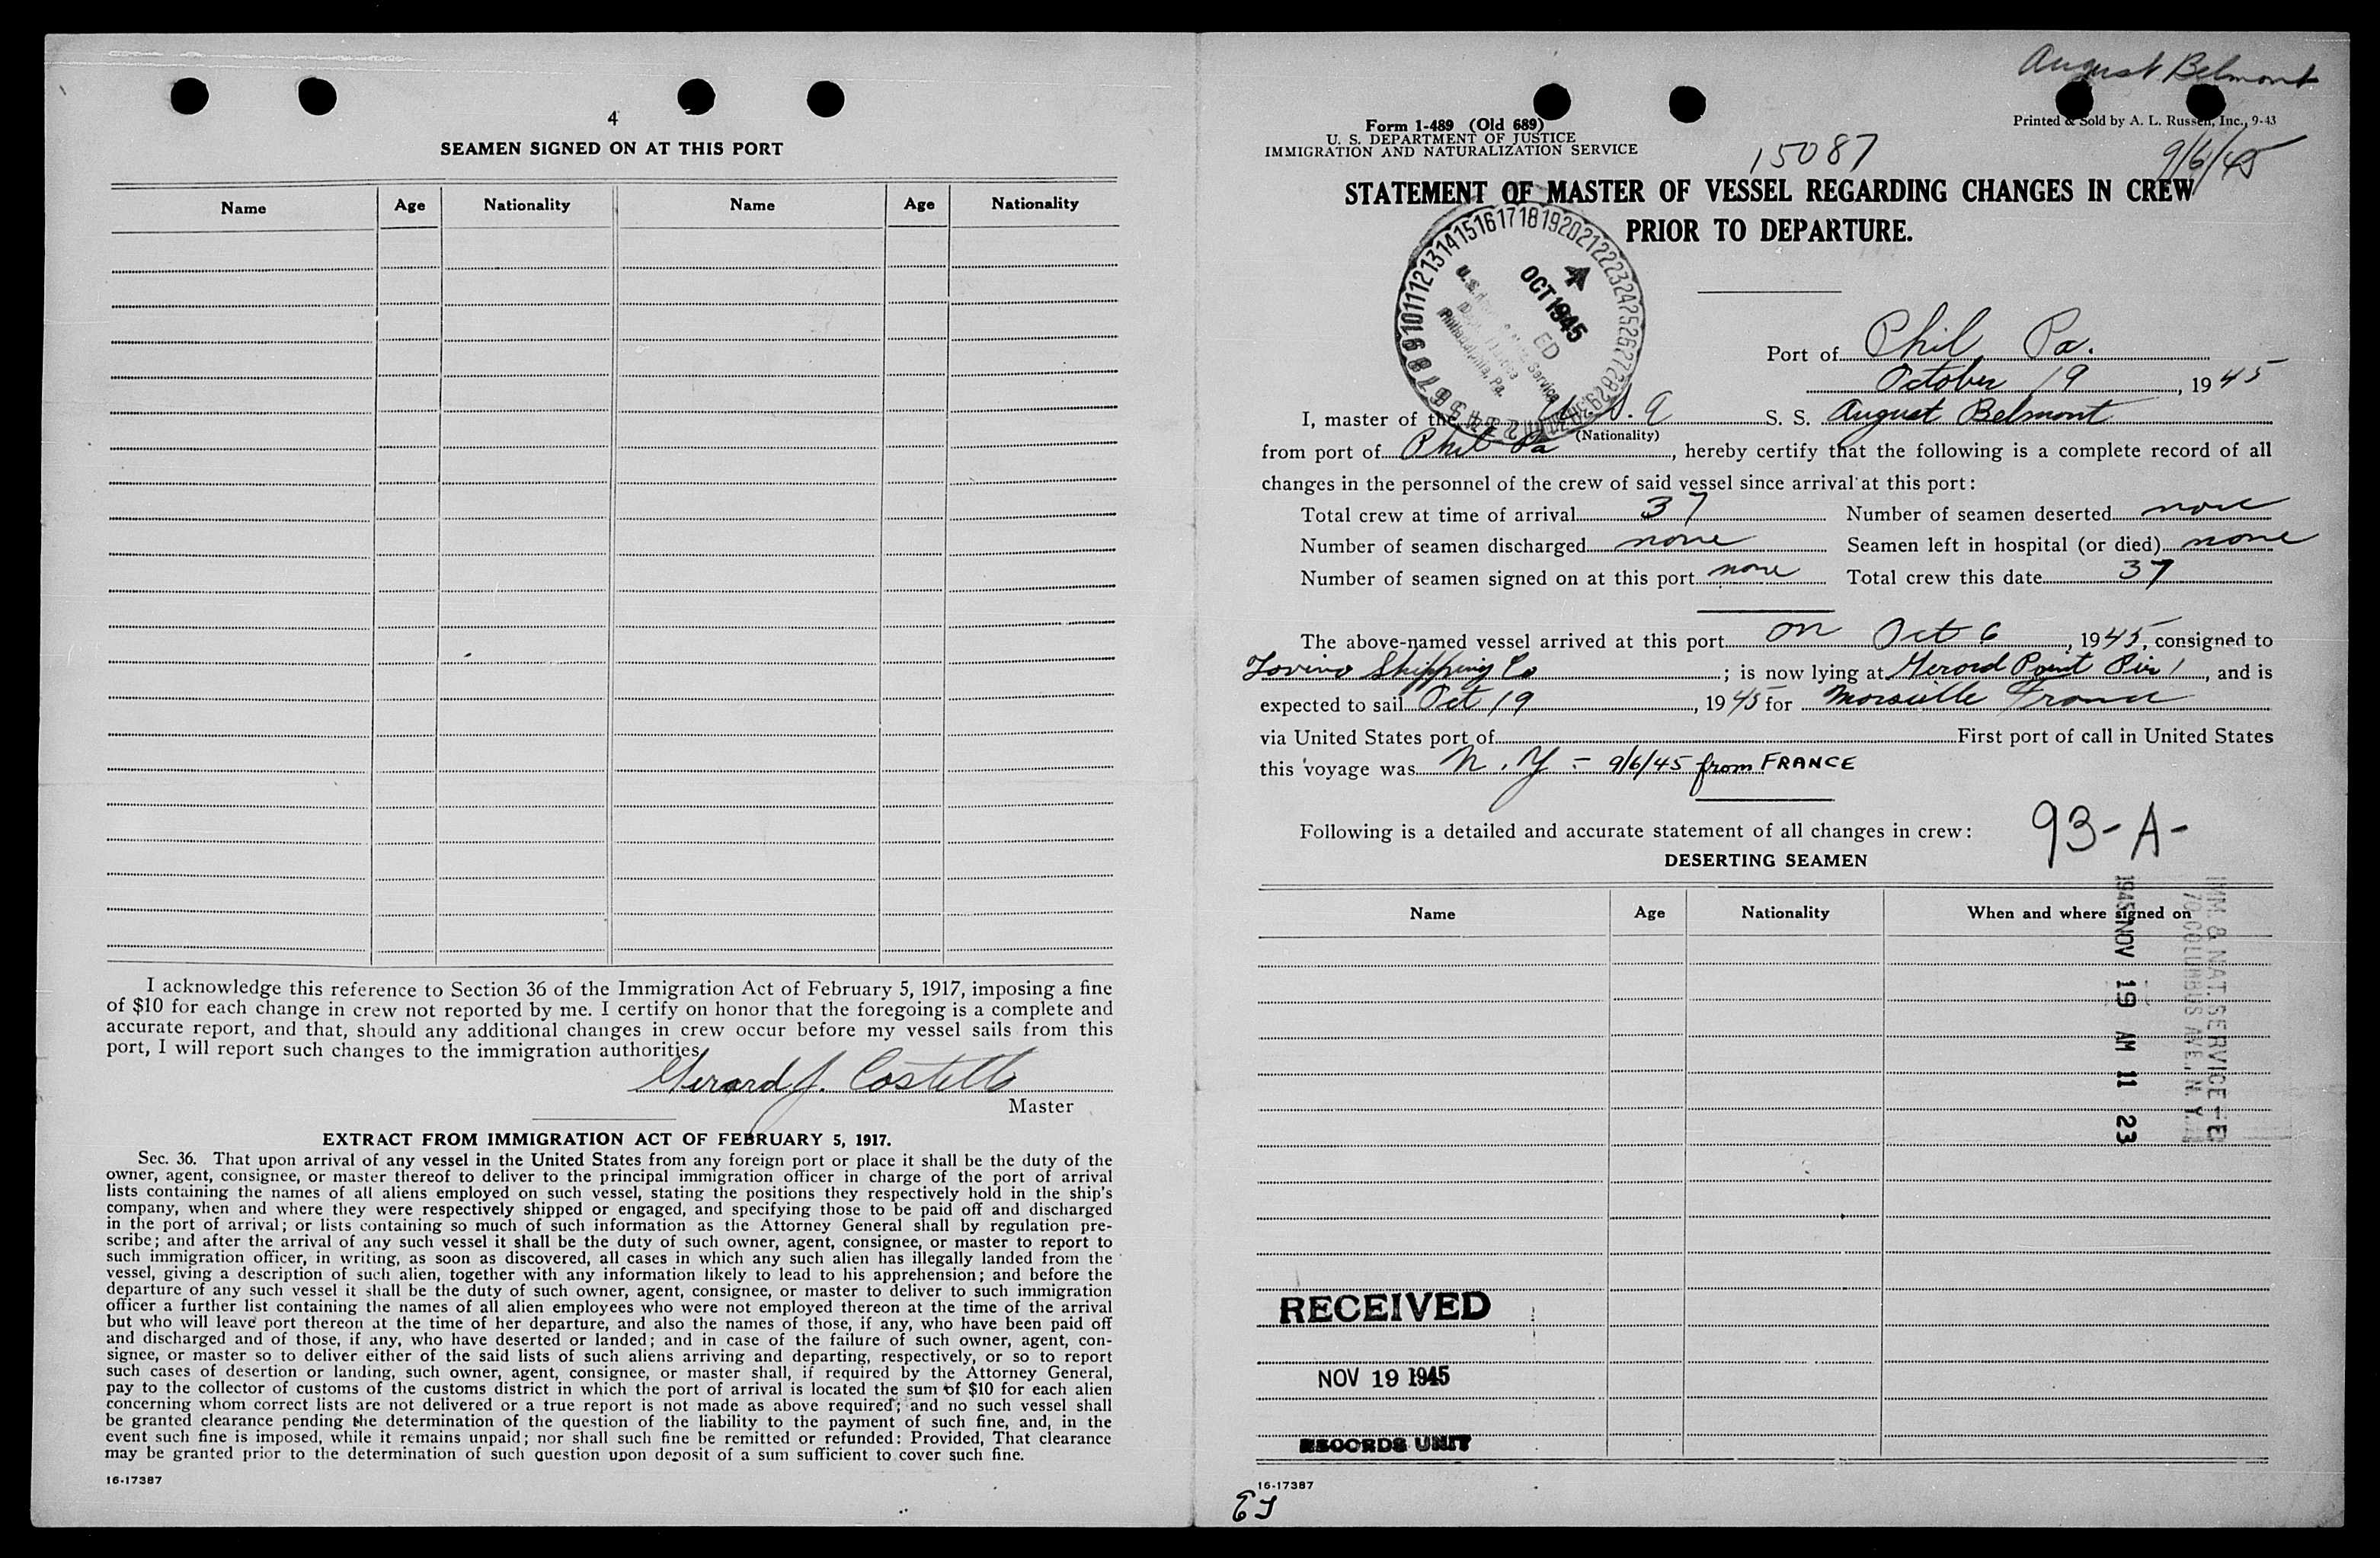 4
SEAMEN SIGNED ON AT THIS PORT
Name Age Nationality Name Age Nationality
I acknowledge this reference to Section 36 of the Immigration Act of February 5, 1917, imposing a fine
of $10 for each change in crew not reported by me. I certify on honor that the foregoing is a complete and
accurate report, and that, should any additional changes in crew occur before my vessel sails from this
port, I will report such changes to the immigration authorities.
Gerard J. Costello
Master
EXTRACT FROM IMMIGRATION ACT OF FEBRUARY 5, 1917.
Sec. 36. That upon arrival of any vessel in the United States from any foreign port or place it shall be the duty of the
owner, agent, consignee, or master thereof to deliver to the principal immigration officer in charge of the port of arrival
lists containing the names of all aliens employed on such vessel, stating the positions they respectively hold in the ship's
company, when and where they were respectively shipped or engaged, and specifying those to be paid off and discharged
in the port of arrival; or lists containing so much of such information as the Attorney General shall by regulation pre-
scribe; and after the arrival of any such vessel it shall be the duty of such owner, agent, consignee, or master to report to
such immigration officer, in writing, as soon as discovered, all cases in which any such alien has illegally landed from the
vessel, giving a description of such alien, together with any information likely to lead to his apprehension; and before the
departure of any such vessel it shall be the duty of such owner, agent, consignee, or master to deliver to such immigration
officer a further list containing the names of all alien employees who were not employed thereon at the time of the arrival
but who will leave port thereon at the time of her departure, and also the names of those, if any, who have been paid off
and discharged and of those, if any, who have deserted or landed; and in case of the failure of such owner, agent, con-
signee, or master so to deliver either of the said lists of such aliens arriving and departing, respectively, or so to report
such cases of desertion or landing, such owner, agent, consignee, or master shall, if required by the Attorney General,
pay to the collector of customs of the customs district in which the port of arrival is located the sum of $10 for each alien
concerning whom correct lists are not delivered or a true report is not made as above required; and no such vessel shall
be granted clearance pending the determination of the question of the liability to the payment of such fine, and, in the
event such fine is imposed, while it remains unpaid; nor shall such fine be remitted or refunded: Provided, That clearance
may be granted prior to the determination of such question upon deposit of a sum sufficient to cover such fine.
16-17387
August Belmont
Form 1-489 (Old 689)
U. S. DEPARTMENT OF JUSTICE
IMMIGRATION AND NATURALIZATION SERVICE
Printed & Sold by A. L. Russell, Inc., 9-43
15087
9/6/45
STATEMENT OF MASTER OF VESSEL REGARDING CHANGES IN CREW
PRIOR TO DEPARTURE.
1 2 3 4 5 6 7 8 9 10 11 12 13 14 15 16 17 18 19 20 21 22 23 24 25 26 27 28 29 30 31
OCT 1945
Philadelphia, Pa.
Port of Phil, Pa.
October 19, 1945
I, master of the U.S.A S. S. August Belmont
(Nationality)
from port of Phil Pa, hereby certify that the following is a complete record of all
changes in the personnel of the crew of said vessel since arrival at this port:
Total crew at time of arrival 37 Number of seamen deserted none
Number of seamen discharged none Seamen left in hospital (or died) none
Number of seamen signed on at this port none Total crew this date 37
The above-named vessel arrived at this port on Oct 6, 1945, consigned to
Shipping Co; is now lying at Point Pier 1, and is
expected to sail Oct 19, 1945 for Marseille France
via United States port of First port of call in United States
this voyage was N.Y - 9/6/45 from FRANCE
Following is a detailed and accurate statement of all changes in crew:
93-A-
DESERTING SEAMEN
Name Age Nationality When and where signed on
IMM. & NAT. SERVICE
70 COLUMBUS AVE., N. Y.
1945 NOV 19 AM 11 23
RECEIVED
NOV 19 1945
RECORDS UNIT
16-17387